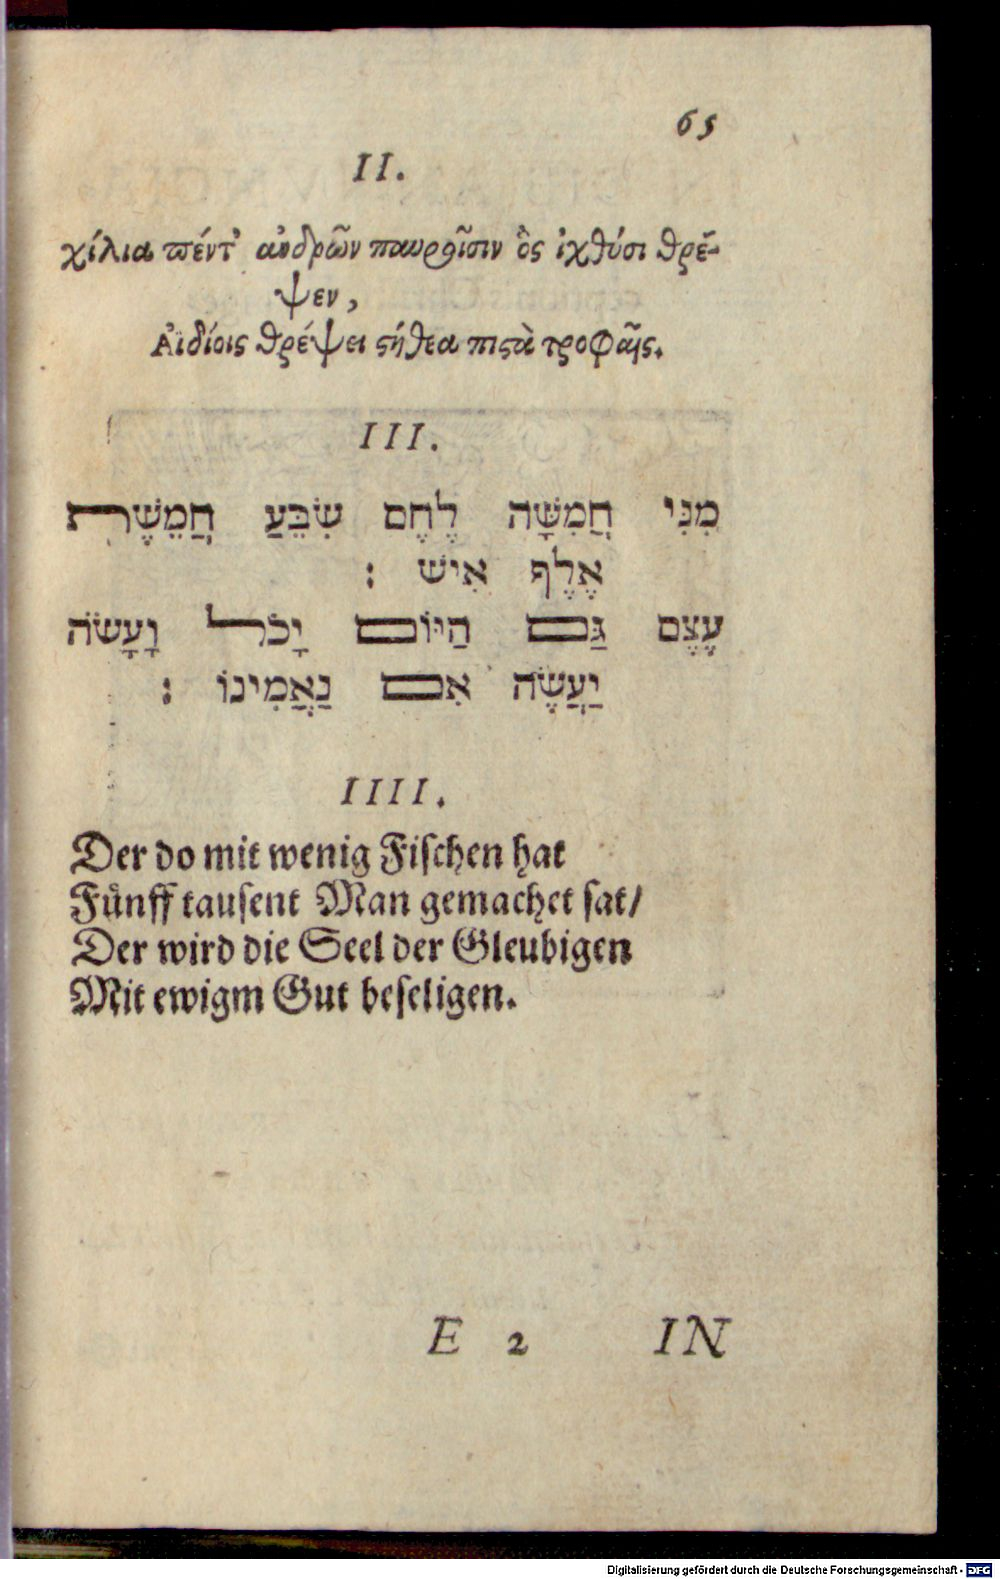 65
II.
χίλια πέντ' ἀνδρῶν παυροῖσιν ὃς ἰχθύσι θρέ-
ψεν,
Ἀϊδίοις θρέψει στήθεα πιστὰ τροφαῖς.
III.
מִנִּי חֲמִשָּׁה לֶחֶם שִׂבֵּעַ חֲמֵשֶׁת
אֶלֶף אִישׁ :
עֶצֶם גַּם הַיּוֹם יָכֹל וָעָשֹׂה
יַעֲשֶׂה אִם נַאֲמִינוֹ :
IIII.
Der do mit wenig Fiſchen hat
Fuͤnff tauſent Man gemachet ſat/
Der wird die Seel der Gleubigen
Mit ewigm Gut beſeligen.
E 2 IN
Digitalisierung gefördert durch die Deutsche Forschungsgemeinschaft - DFG